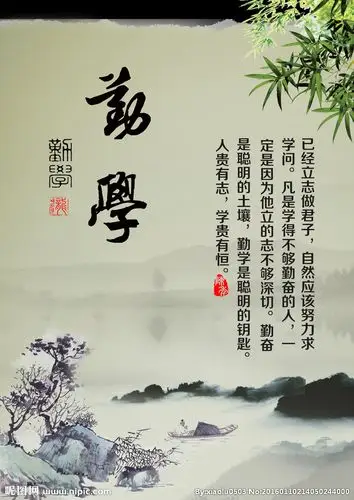 勤學
勤學
已经立志做君子，自然应该努力求
学问。凡是学得不够勤奋的人，一
定是因为他立的志不够深切。勤奋
是聪明的土壤，勤学是聪明的钥匙。
人贵有志，学贵有恒。
昵图网
www.nipic.com
By:xiaolu0503 No:20160110214050244000